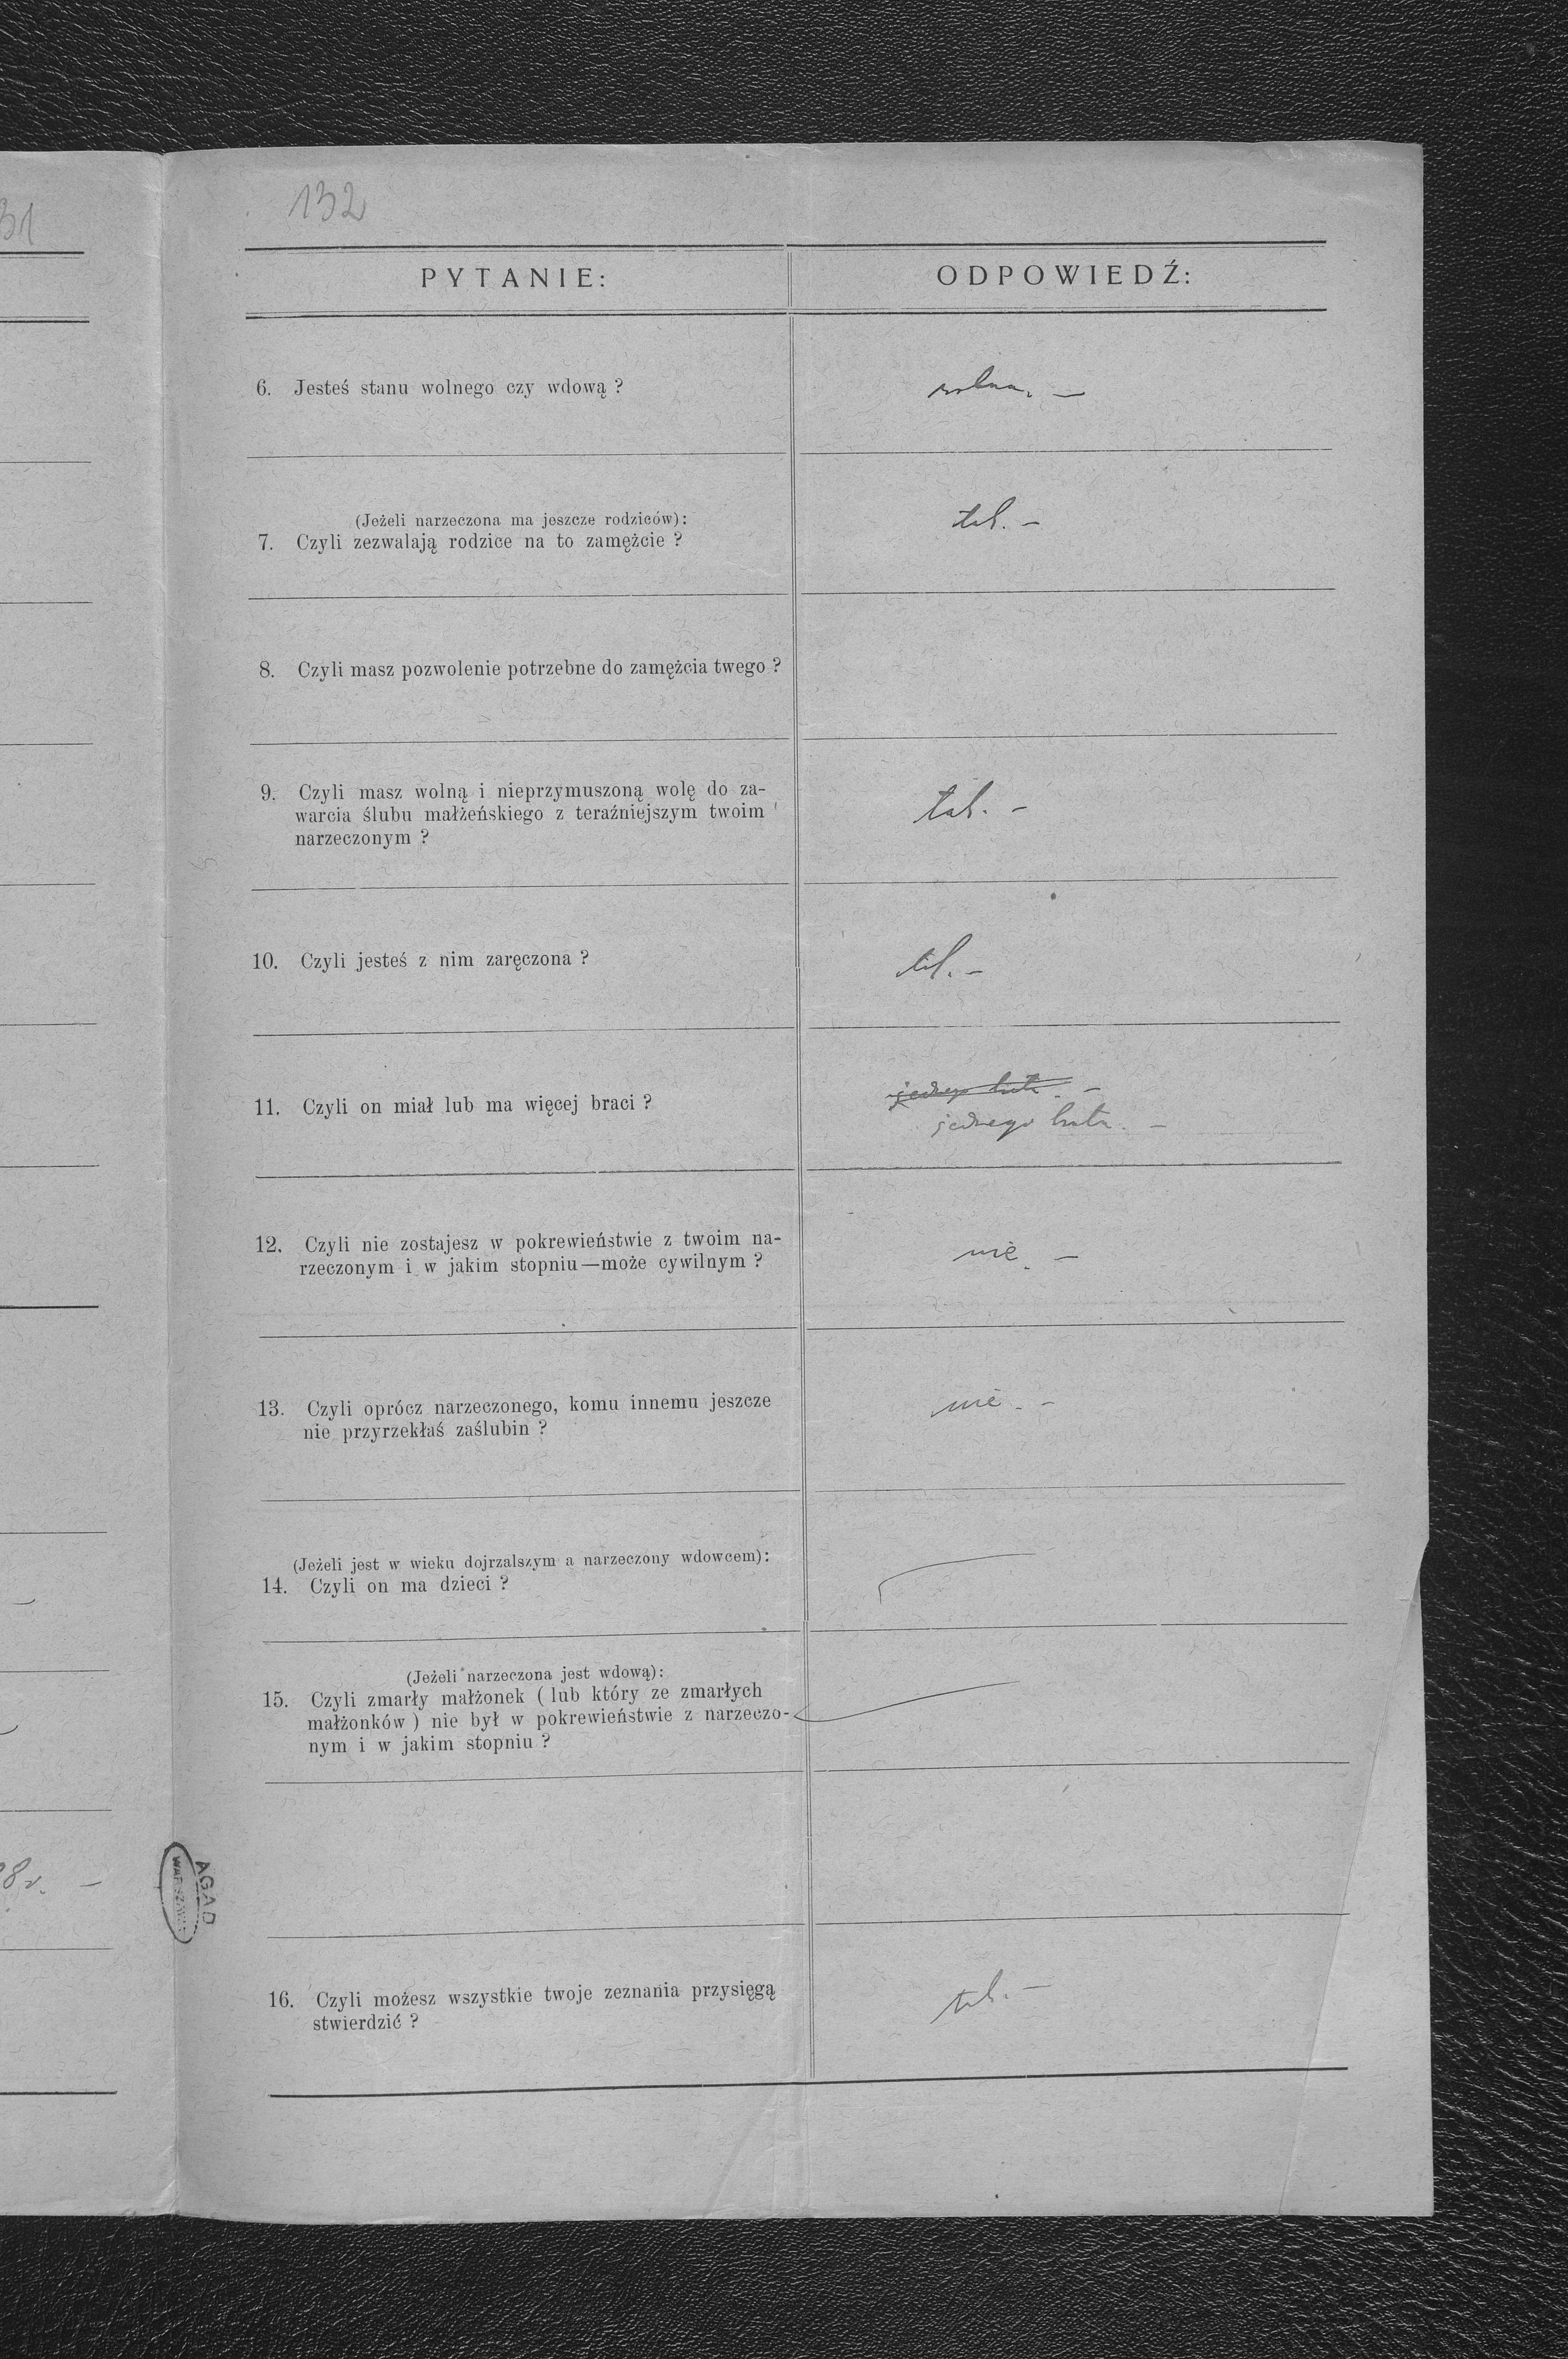 31
132
PYTANIE: ODPOWIEDŹ:
6. Jesteś stanu wolnego czy wdową ? wolna. —
(Jeżeli narzeczona ma jeszcze rodziców):
7. Czyli zezwalają rodzice na to zamężcie ? tak. –
8. Czyli masz pozwolenie potrzebne do zamężcia twego ?
9. Czyli masz wolną i nieprzymuszoną wolę do za-
warcia ślubu małżeńskiego z teraźniejszym twoim
narzeczonym ?
tak. –
10. Czyli jesteś z nim zaręczona ? tak. –
11. Czyli on miał lub ma więcej braci ?
jednego brata. –
jednego brata. –
12. Czyli nie zostajesz w pokrewieństwie z twoim na-
rzeczonym i w jakim stopniu—może cywilnym ?
nie. –
13. Czyli oprócz narzeczonego, komu innemu jeszcze
nie przyrzekłaś zaślubin ?
nie. –
(Jeżeli jest w wieku dojrzalszym a narzeczony wdowcem):
14. Czyli on ma dzieci ?
(Jeżeli narzeczona jest wdową):
15. Czyli zmarły małżonek ( lub który ze zmarłych
małżonków ) nie był w pokrewieństwie z narzeczo-
nym i w jakim stopniu ?
8r. –
AGAD
WARSZAWA
16. Czyli możesz wszystkie twoje zeznania przysięgą
stwierdzić ?
tak. –